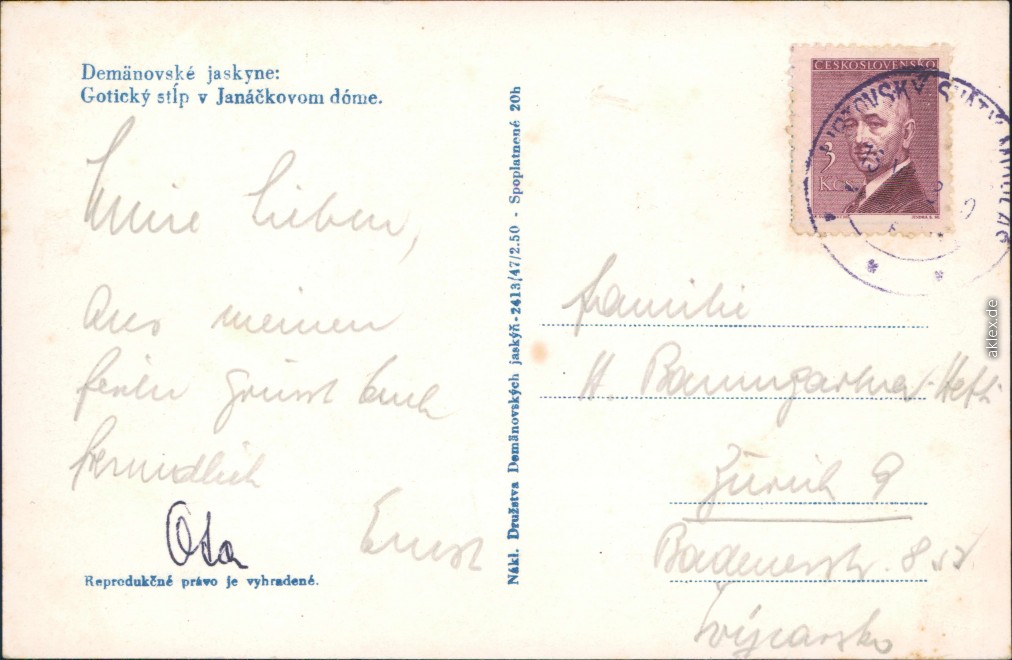 Demänovské jaskyne:
Gotický stĺp v Janáčkovom dóme.
Meine Lieben,
Aus meinen
Ferien grüsst Euch
freundlich
Ota
Ernst
Reprodukčné právo je vyhradené.
Nákl. Družstva Demänovských jaskýň - 2413/47/2.50 - Spoplatnené 20h
ČESKOSLOVENSKO
3
KČS
LIPTOVSKÝ SVÄTÝ MIKULÁŠ
Familie
H. Baumgartner-
Zürich 9
Badenerstr.
Švýcarsko
aklex.de